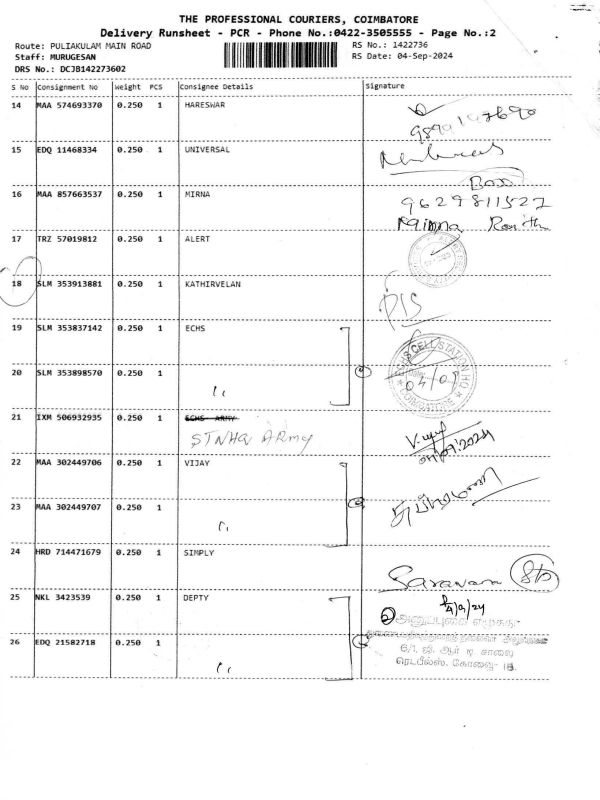 THE PROFESSIONAL COURIERS, COIMBATORE
Delivery Runsheet - PCR - Phone No.:0422-3505555 - Page No.:2
Route: PULIAKULAM MAIN ROAD
RS No.: 1422736
Staff: MURUGESAN
RS Date: 04-Sep-2024
DRS No.: DCJB142273602
S No Consignment No Weight PCS Consignee Details Signature
14 MAA 574693370 0.250 1 HARESWAR
15 EDQ 11468334 0.250 1 UNIVERSAL
Boss
16 MAA 857663537 0.250 1 MIRNA
9629811527
17 TRZ 57019812 0.250 1 ALERT
18 SLM 353913881 0.250 1 KATHIRVELAN
19 SLM 353837142 0.250 1 ECHS
ECHS CELL STATION HQ
COIMBATORE
04/09
20 SLM 353898570 0.250 1 〃
21 IXM 506932935 0.250 1 ECHS ARMY
STNHQ ARMY
04/09/2024
22 MAA 302449706 0.250 1 VIJAY
23 MAA 302449707 0.250 1 〃
24 HRD 714471679 0.250 1 SIMPLY
Saravana
25 NKL 3423539 0.250 1 DEPTY
4/9/24
26 EDQ 21582718 0.250 1 〃
6/1, ஜி. ஆர் டி சாலை
ரெட்பீல்ஸ், கோவை- 18.